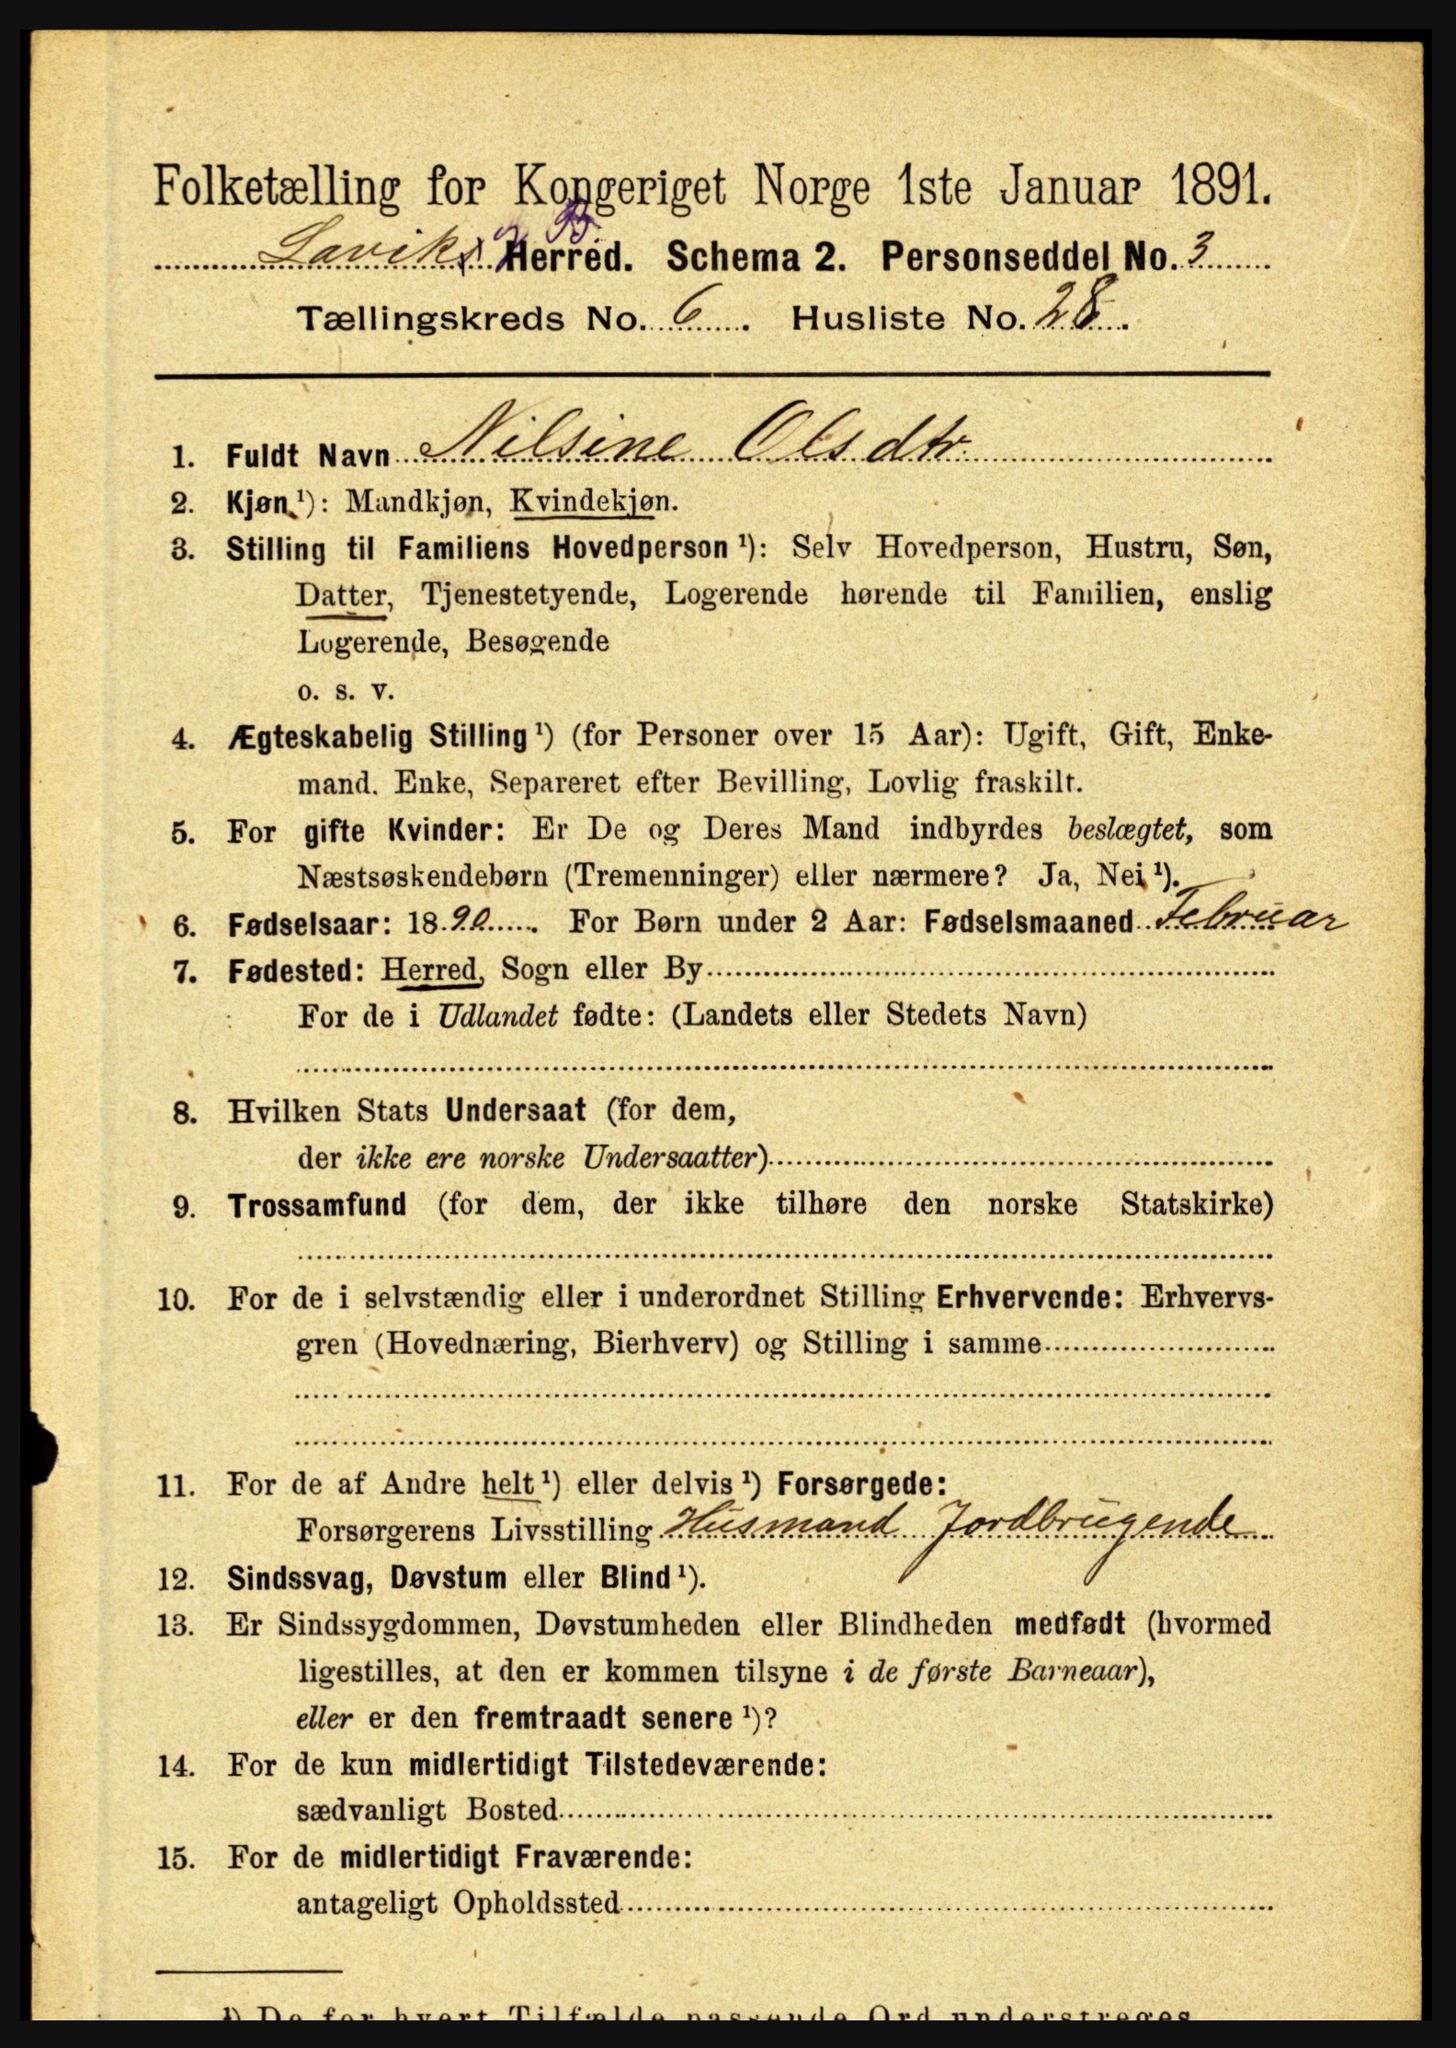 Folketælling for Kongeriget Norge 1ste Januar 1891.
Laviks og B. Herred. Schema 2. Personseddel No. 3
Tællingskreds No. 6. Husliste No. 28.
1. Fuldt Navn Nilsine Olsdtr.
2. Kjøn¹): Mandkjøn, Kvindekjøn.
3. Stilling til Familiens Hovedperson¹): Selv Hovedperson, Hustru, Søn,
Datter, Tjenestetyende, Logerende hørende til Familien, enslig
Logerende, Besøgende
o. s. v.
4. Ægteskabelig Stilling¹) (for Personer over 15 Aar): Ugift, Gift, Enke-
mand. Enke, Separeret efter Bevilling, Lovlig fraskilt.
5. For gifte Kvinder: Er De og Deres Mand indbyrdes beslægtet, som
Næstsøskendebørn (Tremenninger) eller nærmere? Ja, Nei¹).
6. Fødselsaar: 1890. For Børn under 2 Aar: Fødselsmaaned Februar
7. Fødested: Herred, Sogn eller By
For de i Udlandet fødte: (Landets eller Stedets Navn)
8. Hvilken Stats Undersaat (for dem,
der ikke ere norske Undersaatter)
9. Trossamfund (for dem, der ikke tilhøre den norske Statskirke)
10. For de i selvstændig eller i underordnet Stilling Erhvervende: Erhvervs-
gren (Hovednæring, Bierhverv) og Stilling i samme
11. For de af Andre helt¹) eller delvis¹) Forsørgede:
Forsørgerens Livsstilling Husmand Jordbrugende
12. Sindssvag, Døvstum eller Blind¹).
13. Er Sindssygdommen, Døvstumheden eller Blindheden medfødt (hvormed
ligestilles, at den er kommen tilsyne i de første Barneaar),
eller er den fremtraadt senere¹)?
14. For de kun midlertidigt Tilstedeværende:
sædvanligt Bosted
15. For de midlertidigt Fraværende:
antageligt Opholdssted
¹) De for hvert Tilfælde passende Ord understreges